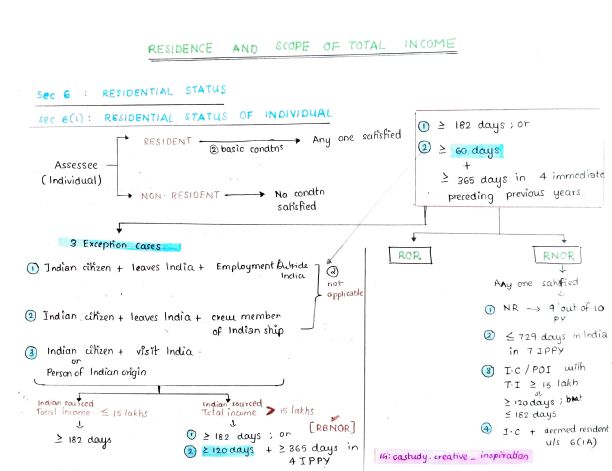 RESIDENCE AND SCOPE OF TOTAL INCOME
Sec 6 : RESIDENTIAL STATUS
Sec 6(1) : RESIDENTIAL STATUS OF INDIVIDUAL
Assessee
(Individual)
RESIDENT
② basic condtns
Any one satisfied
NON-RESIDENT
No condtn
satisfied
① ≥ 182 days ; or
② ≥ 60 days
+
≥ 365 days in 4 immediate
preceding previous years
3 Exception cases
① Indian citizen + leaves India + Employment Outside
India
② Indian citizen + leaves India + crew member
of Indian ship
②
not
applicable
③ Indian citizen + visit India
or
Person of Indian origin
Indian sourced
Total income ≤ 15 lakhs
≥ 182 days
Indian sourced
Total income > 15 lakhs
[RBNOR]
① ≥ 182 days ; or
② ≥ 120 days + ≥ 365 days in
4 IPPY
ROR
RNOR
Any one satisfied
① NR → 9 out of 10
PY
② ≤ 729 days in India
in 7 IPPY
③ I.C / POI with
T.I ≥ 15 lakh
≥ 120 days ; but
≤ 182 days
④ I.C + deemed resident
u/s 6(1A)
IG: castudy.creative_inspiration